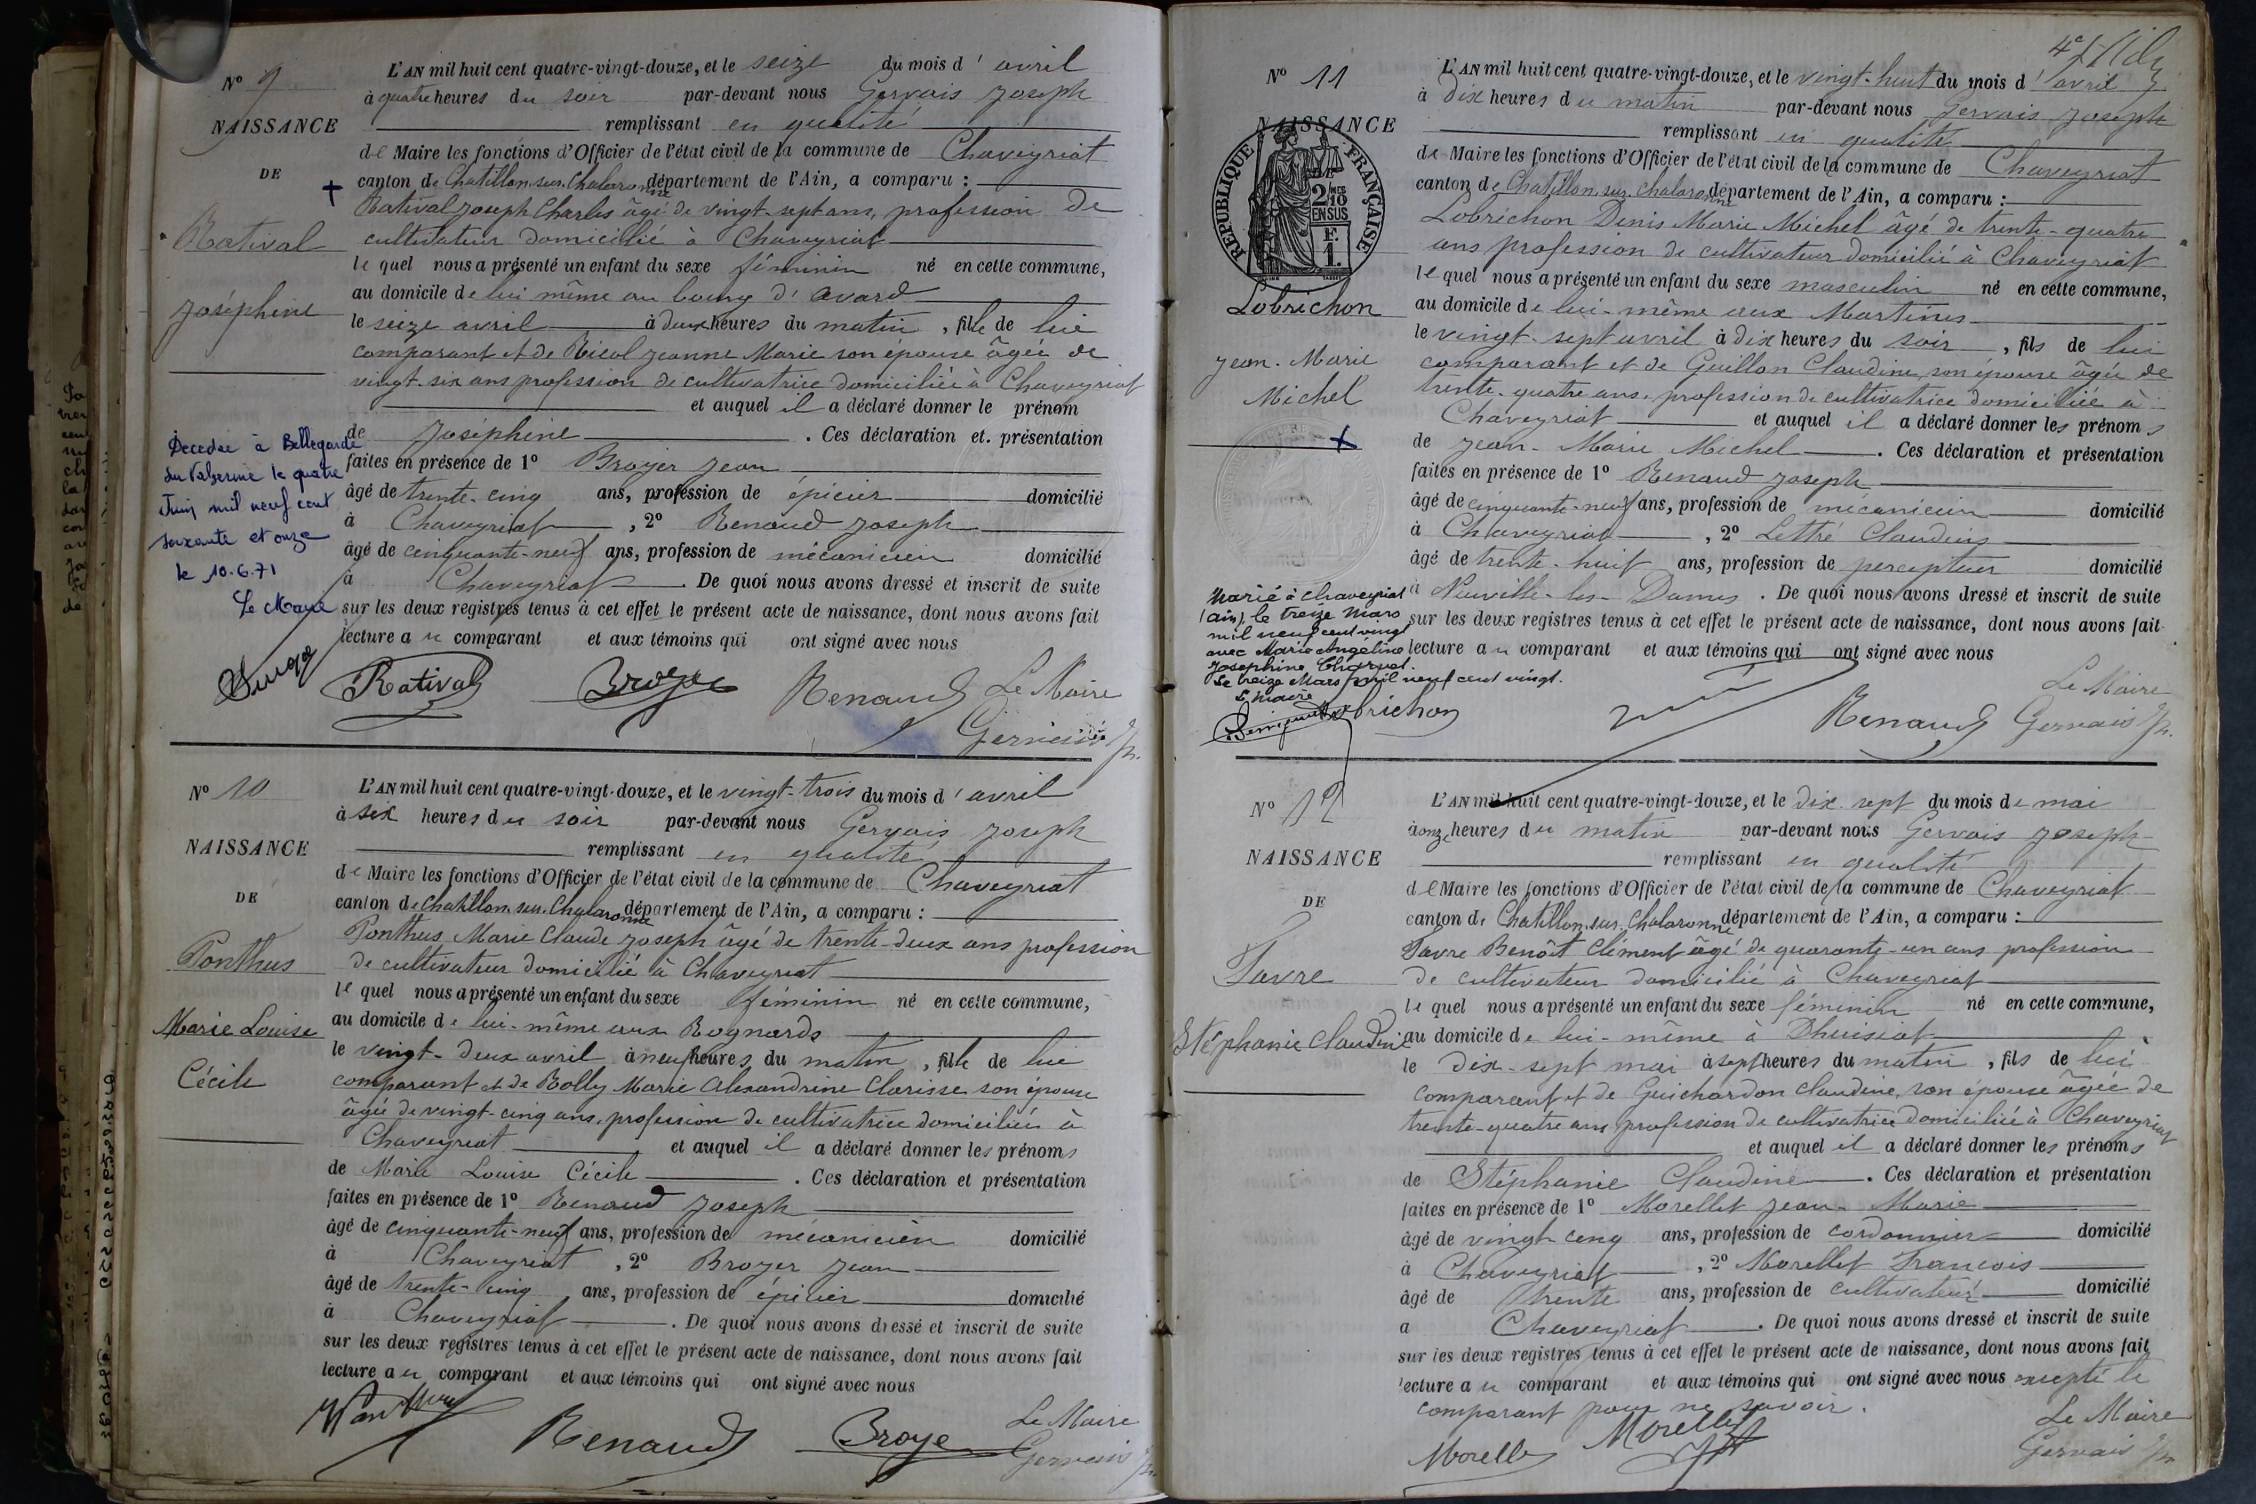 Nº 9
NAISSANCE
DE
Ratival
Joséphine
L'AN mil huit cent quatre-vingt-douze, et le seize du mois d'avril
à quatre heures du soir par-devant nous Gervais Joseph
remplissant en qualité
de Maire les fonctions d'Officier de l'état civil de la commune de Chaveyriat
canton de Chatillon-sur-Chalaronne département de l'Ain, a comparu :
Ratival Joseph Charles âgé de vingt-sept ans, profession de
cultivateur domicilié à Chaveyriat
le quel nous a présenté un enfant du sexe féminin né en cette commune,
au domicile de lui même au bourg d'Avard
le seize avril à deux heures du matin, fille de lui
comparant et de Ricol Jeanne Marie son épouse âgée de
vingt-six ans profession de cultivatrice domiciliée à Chaveyriat
et auquel il a déclaré donner le prénom
de Joséphine. Ces déclaration et présentation
faites en présence de 1º Broyer Jean
âgé de trente-cinq ans, profession de épicier domicilié
à Chaveyriat, 2º Renaud Joseph
âgé de cinquante-neuf ans, profession de mécanicien domicilié
à Chaveyriat. De quoi nous avons dressé et inscrit de suite
sur les deux registres tenus à cet effet le présent acte de naissance, dont nous avons fait
lecture au comparant et aux témoins qui ont signé avec nous
Decedée à Bellegarde
sur Valserine le quatre
Juin mil neuf cent
soixante et onze
le 10.6.71
Le Maire
Ratival Broyer Renaud Le Maire
Gervais Jh.
Nº 10
NAISSANCE
DE
Ponthus
Marie Louise
Cécile
L'AN mil huit cent quatre-vingt-douze, et le vingt-trois du mois d'avril
à six heures du soir par-devant nous Gervais Joseph
remplissant en qualité
de Maire les fonctions d'Officier de l'état civil de la commune de Chaveyriat
canton de Chatillon-sur-Chalaronne département de l'Ain, a comparu :
Ponthus Marie Claude Joseph âgé de trente-deux ans profession
de cultivateur domicilié à Chaveyriat
le quel nous a présenté un enfant du sexe féminin né en cette commune,
au domicile de lui-même aux Rognards
le vingt-deux avril à neuf heures du matin, fille de lui
comparant et de Bolly Marie Alexandrine Clarisse son épouse
âgée de vingt-cinq ans, profession de cultivatrice domiciliée à
Chaveyriat et auquel il a déclaré donner les prénoms
de Marie Louise Cécile. Ces déclaration et présentation
faites en présence de 1º Renaud Joseph
âgé de cinquante-neuf ans, profession de mécanicien domicilié
à Chaveyriat, 2º Broyer Jean
âgé de trente-cinq ans, profession de épicier domicilié
à Chaveyriat. De quoi nous avons dressé et inscrit de suite
sur les deux registres tenus à cet effet le présent acte de naissance, dont nous avons fait
lecture au comparant et aux témoins qui ont signé avec nous
Ponthus Renaud Broyer Le Maire
Gervais Jh.
Nº 11
NAISSANCE
RÉPUBLIQUE FRANÇAISE
2/10 EN SUS
F. 1.
Lobrichon
Jean-Marie
Michel
L'AN mil huit cent quatre-vingt-douze, et le vingt-huit du mois d'avril
à dix heures du matin par-devant nous Gervais Joseph
remplissant en qualité
de Maire les fonctions d'Officier de l'état civil de la commune de Chaveyriat
canton de Chatillon-sur-Chalaronne département de l'Ain, a comparu :
Lobrichon Denis Marie Michel âgé de trente-quatre
ans profession de cultivateur domicilié à Chaveyriat
le quel nous a présenté un enfant du sexe masculin né en cette commune,
au domicile de lui-même aux Martines
le vingt-sept avril à dix heures du soir, fils de lui
comparant et de Guillon Claudine, son épouse âgée de
trente-quatre ans, profession de cultivatrice domiciliée à
Chaveyriat et auquel il a déclaré donner les prénoms
de Jean-Marie Michel. Ces déclaration et présentation
faites en présence de 1º Renaud Joseph
âgé de cinquante-neuf ans, profession de mécanicien domicilié
à Chaveyriat, 2º Lettré Claudius
âgé de trente-huit ans, profession de percepteur domicilié
à Neuville-les-Dames. De quoi nous avons dressé et inscrit de suite
sur les deux registres tenus à cet effet le présent acte de naissance, dont nous avons fait
lecture au comparant et aux témoins qui ont signé avec nous
Marié à Chaveyriat
(ain), le treize Mars
mil neuf cent vingt
avec Marie Angéline
Josephine Charvet.
Le treize Mars mil neuf cent vingt.
Le maire
Lobrichon Renaud Le Maire
Gervais Jh.
Nº 12
NAISSANCE
DE
Favre
Stéphanie Claudine
L'AN mil huit cent quatre-vingt-douze, et le dix-sept du mois de mai
à onze heures du matin par-devant nous Gervais Joseph
remplissant en qualité
de Maire les fonctions d'Officier de l'état civil de la commune de Chaveyriat
canton de Chatillon-sur-Chalaronne département de l'Ain, a comparu :
Favre Benoît Clément âgé de quarante-un ans profession
de cultivateur domicilié à Chaveyriat
le quel nous a présenté un enfant du sexe féminin né en cette commune,
au domicile de lui-même à Dhuisiat
le dix-sept mai à sept heures du matin, fils de lui
comparant et de Guichardon Claudine, son épouse âgée de
trente-quatre ans profession de cultivatrice domiciliée à Chaveyriat
et auquel il a déclaré donner les prénoms
de Stéphanie Claudine. Ces déclaration et présentation
faites en présence de 1º Morellet Jean-Marie
âgé de vingt cinq ans, profession de cordonnier domicilié
à Chaveyriat, 2º Morellet Francois
âgé de trente ans, profession de cultivateur domicilié
à Chaveyriat. De quoi nous avons dressé et inscrit de suite
sur les deux registres tenus à cet effet le présent acte de naissance, dont nous avons fait
lecture au comparant et aux témoins qui ont signé avec nous excepté le
comparant pour ne savoir.
Morellet Morellet Le Maire
Gervais Jh